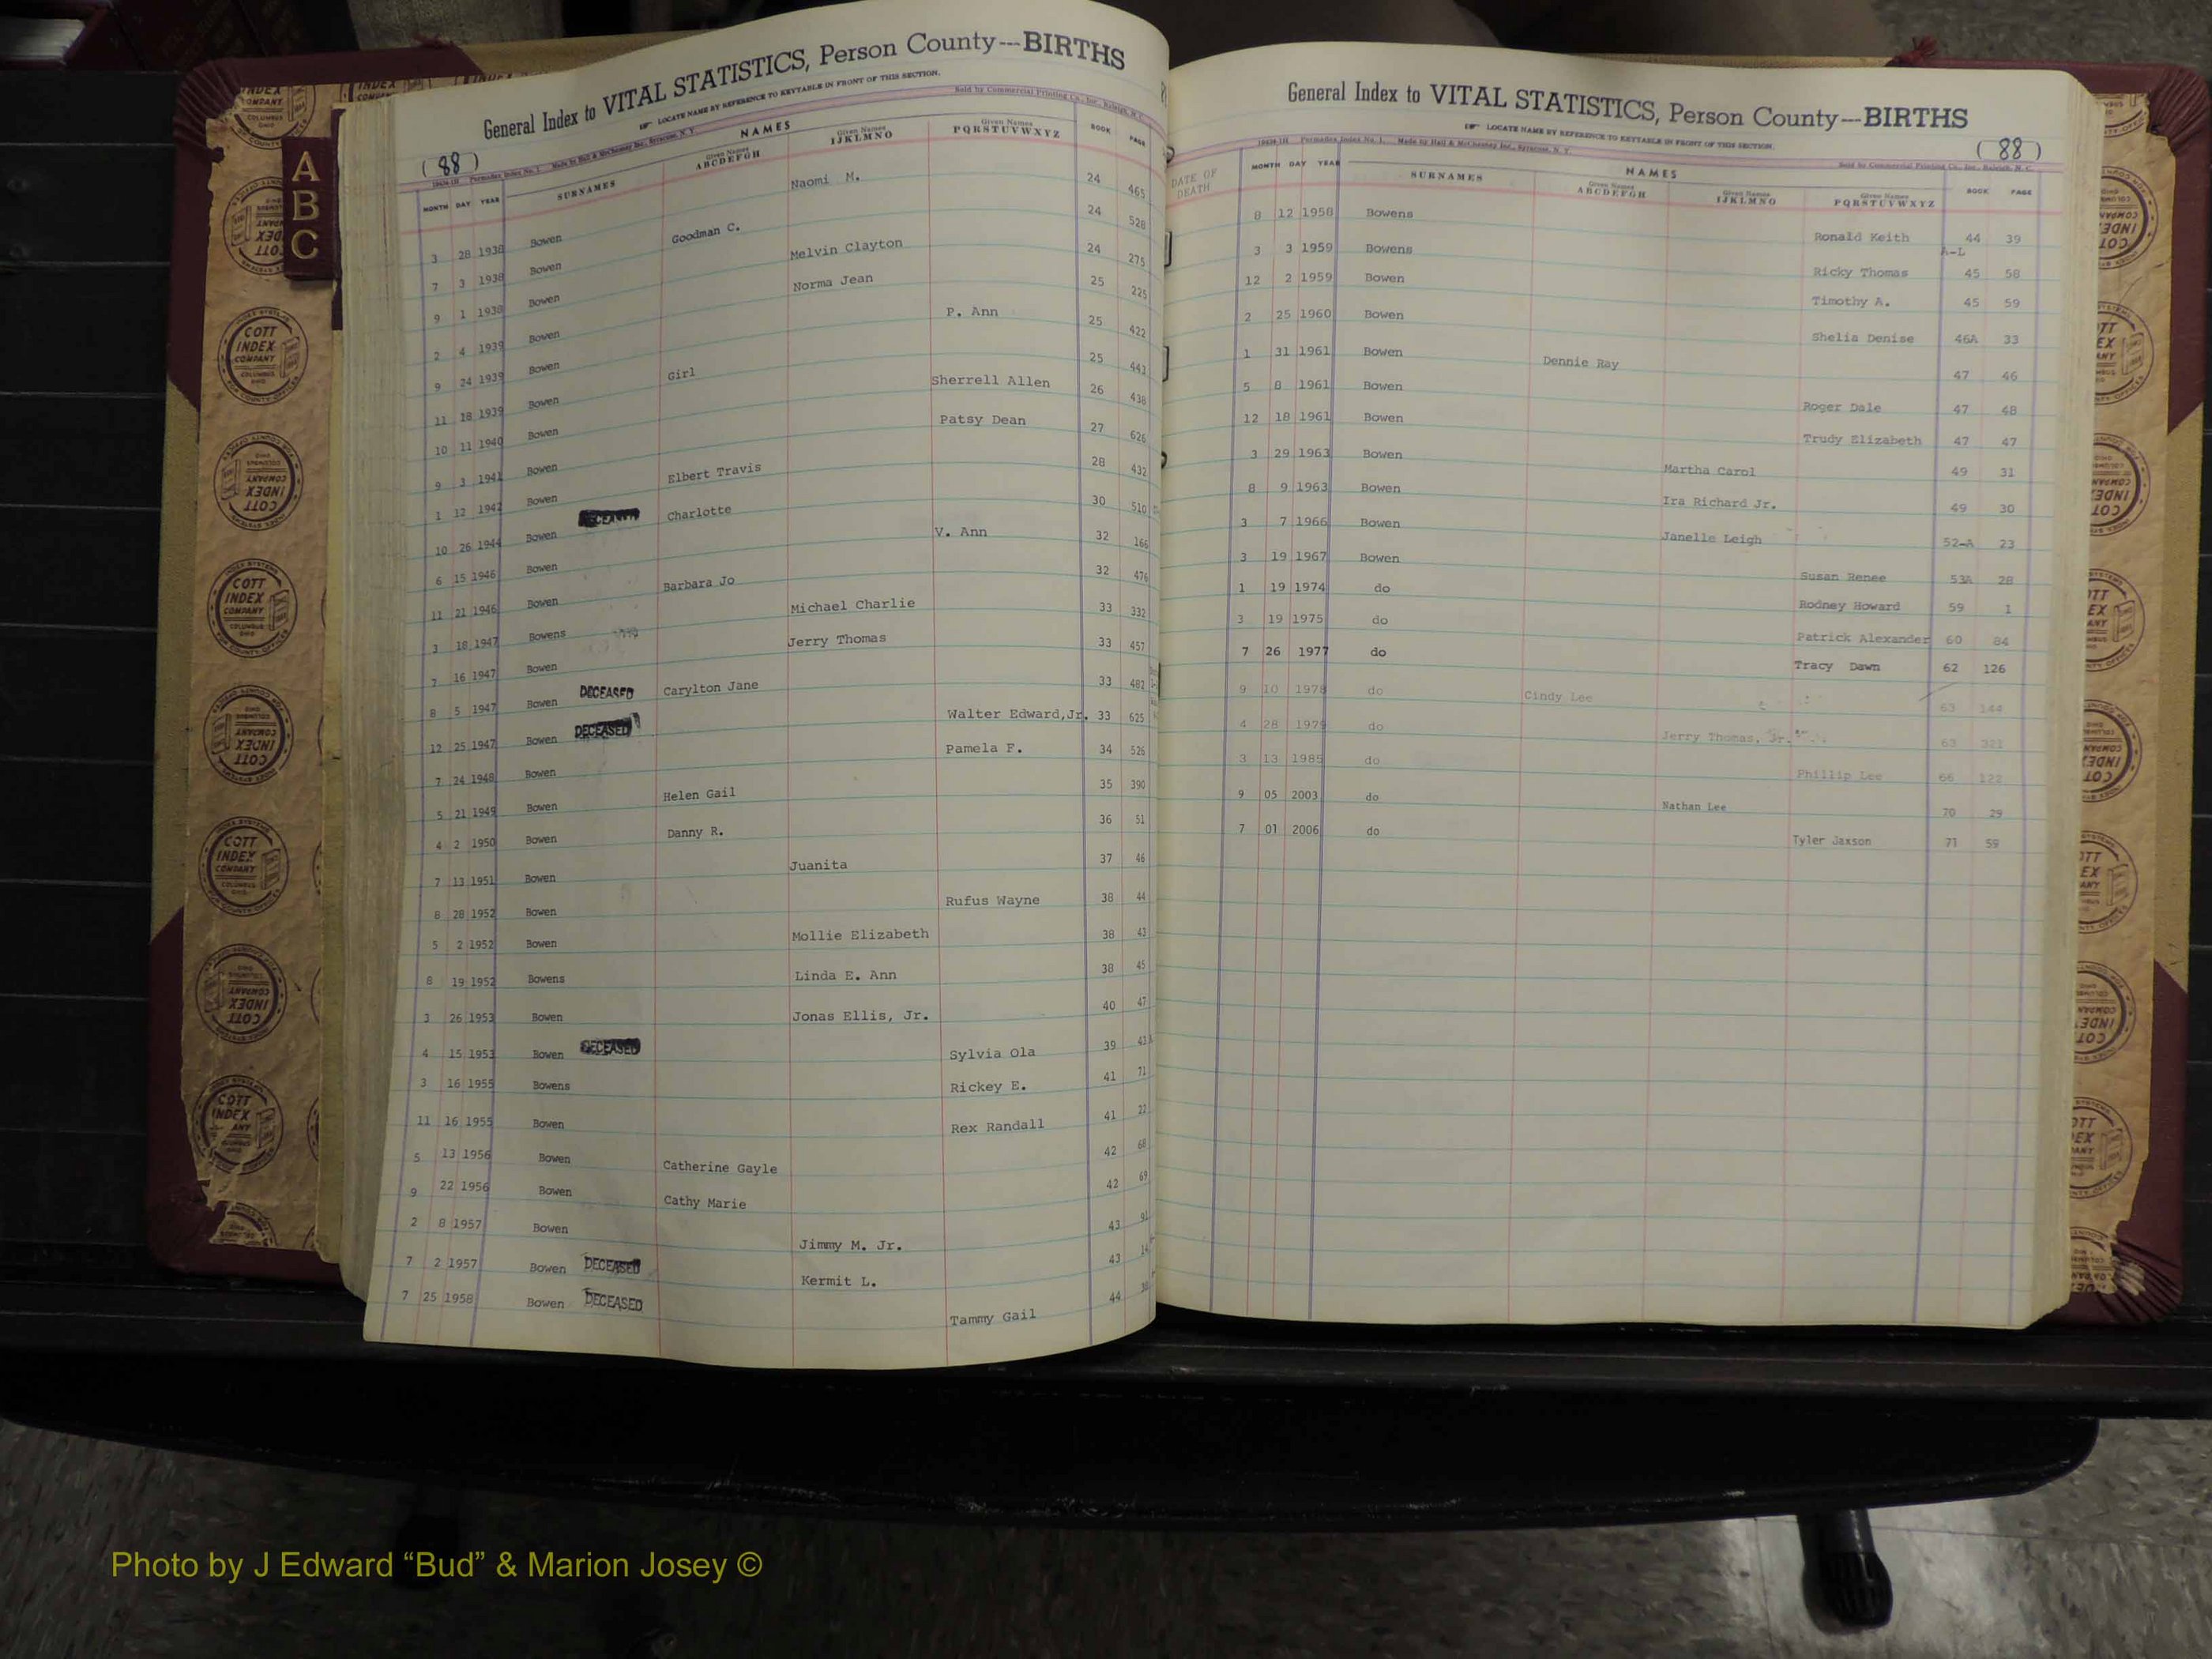 General Index to VITAL STATISTICS, Person County---BIRTHS
LOCATE NAME BY REFERENCE TO KEYTABLE IN FRONT OF THIS SECTION.
Sold by Commercial Printing Co., Inc., Raleigh, N. C.
(88)
NAMES
MONTH DAY YEAR SURNAMES Given Names ABCDEFGH Given Names IJKLMNO Given Names PQRSTUVWXYZ BOOK PAGE
3 28 1938 Bowen Naomi M. 24 465
7 3 1938 Bowen Goodman C. 24 528
9 1 1938 Bowen Melvin Clayton 24 275
2 4 1939 Bowen Norma Jean 25 225
9 24 1939 Bowen P. Ann 25 422
11 18 1939 Bowen Girl 25 443
10 11 1940 Bowen Sherrell Allen 26 438
9 3 1941 Bowen Patsy Dean 27 626
1 12 1942 Bowen Elbert Travis 28 432
10 26 1944 Bowen DECEASED Charlotte 30 510
6 15 1946 Bowen V. Ann 32 166
11 21 1946 Bowen Barbara Jo 32 476
3 18 1947 Bowens Michael Charlie 33 332
7 16 1947 Bowen Jerry Thomas 33 457
8 5 1947 Bowen DECEASED Carylton Jane 33 482
12 25 1947 Bowen DECEASED Walter Edward,Jr. 33 625
7 24 1948 Bowen Pamela F. 34 526
5 21 1949 Bowen Helen Gail 35 390
4 2 1950 Bowen Danny R. 36 51
7 13 1951 Bowen Juanita 37 46
8 28 1952 Bowen Rufus Wayne 38 44
5 2 1952 Bowen Mollie Elizabeth 38 43
8 19 1952 Bowens Linda E. Ann 38 45
3 26 1953 Bowen Jonas Ellis, Jr. 40 47
4 15 1953 Bowen DECEASED Sylvia Ola 39 43
3 16 1955 Bowens Rickey E. 41 71
11 16 1955 Bowen Rex Randall 41 22
5 13 1956 Bowen Catherine Gayle 42 68
9 22 1956 Bowen Cathy Marie 42 69
2 8 1957 Bowen Jimmy M. Jr. 43 91
7 2 1957 Bowen DECEASED Kermit L. 43
7 25 1958 Bowen DECEASED Tammy Gail 44
General Index to VITAL STATISTICS, Person County---BIRTHS
LOCATE NAME BY REFERENCE TO KEYTABLE IN FRONT OF THIS SECTION.
Sold by Commercial Printing Co., Inc., Raleigh, N. C.
(88)
NAMES
DATE OF DEATH MONTH DAY YEAR SURNAMES Given Names ABCDEFGH Given Names IJKLMNO Given Names PQRSTUVWXYZ BOOK PAGE
8 12 1958 Bowens Ronald Keith 44 A-L 39
3 3 1959 Bowens Ricky Thomas 45 58
12 2 1959 Bowen Timothy A. 45 59
2 25 1960 Bowen Shelia Denise 46A 33
1 31 1961 Bowen Dennie Ray 47 46
5 8 1961 Bowen Roger Dale 47 48
12 18 1961 Bowen Trudy Elizabeth 47 47
3 29 1963 Bowen Martha Carol 49 31
8 9 1963 Bowen Ira Richard Jr. 49 30
3 7 1966 Bowen Janelle Leigh 52-A 23
3 19 1967 Bowen Susan Renee 53A 28
1 19 1974 do Rodney Howard 59 1
3 19 1975 do Patrick Alexander 60 84
7 26 1977 do Tracy Dawn 62 126
9 10 1978 do Cindy Lee 63 144
4 28 1979 do Jerry Thomas, Jr. 63 322
3 13 1985 do Phillip Lee 66 122
9 05 2003 do Nathan Lee 70 29
7 01 2006 do Tyler Jaxson 71 59
A
B
C
COTT INDEX COMPANY COLUMBUS OHIO
Photo by J Edward “Bud” & Marion Josey ©